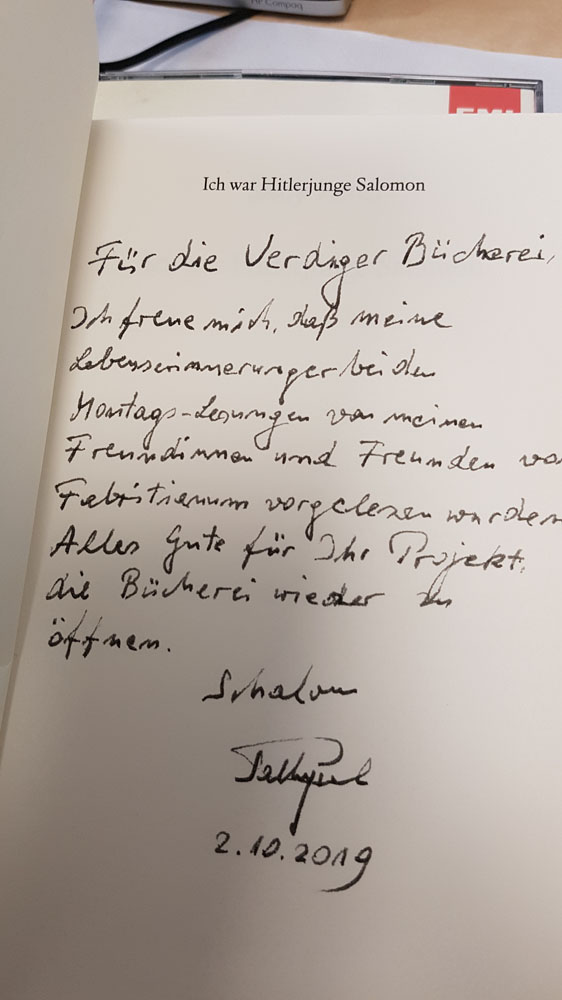 hp Compaq
EMI
Ich war Hitlerjunge Salomon
Für die Verdinger Bücherei,
Ich freue mich, daß meine
Lebenserinnerungen bei den
Montags-Lesungen von meinen
Freundinnen und Freunden vo
Fabritianum vorgelesen wurden
Alles Gute für Ihr Projekt,
die Bücherei wieder zu
öffnen.
Schalom
2.10.2019